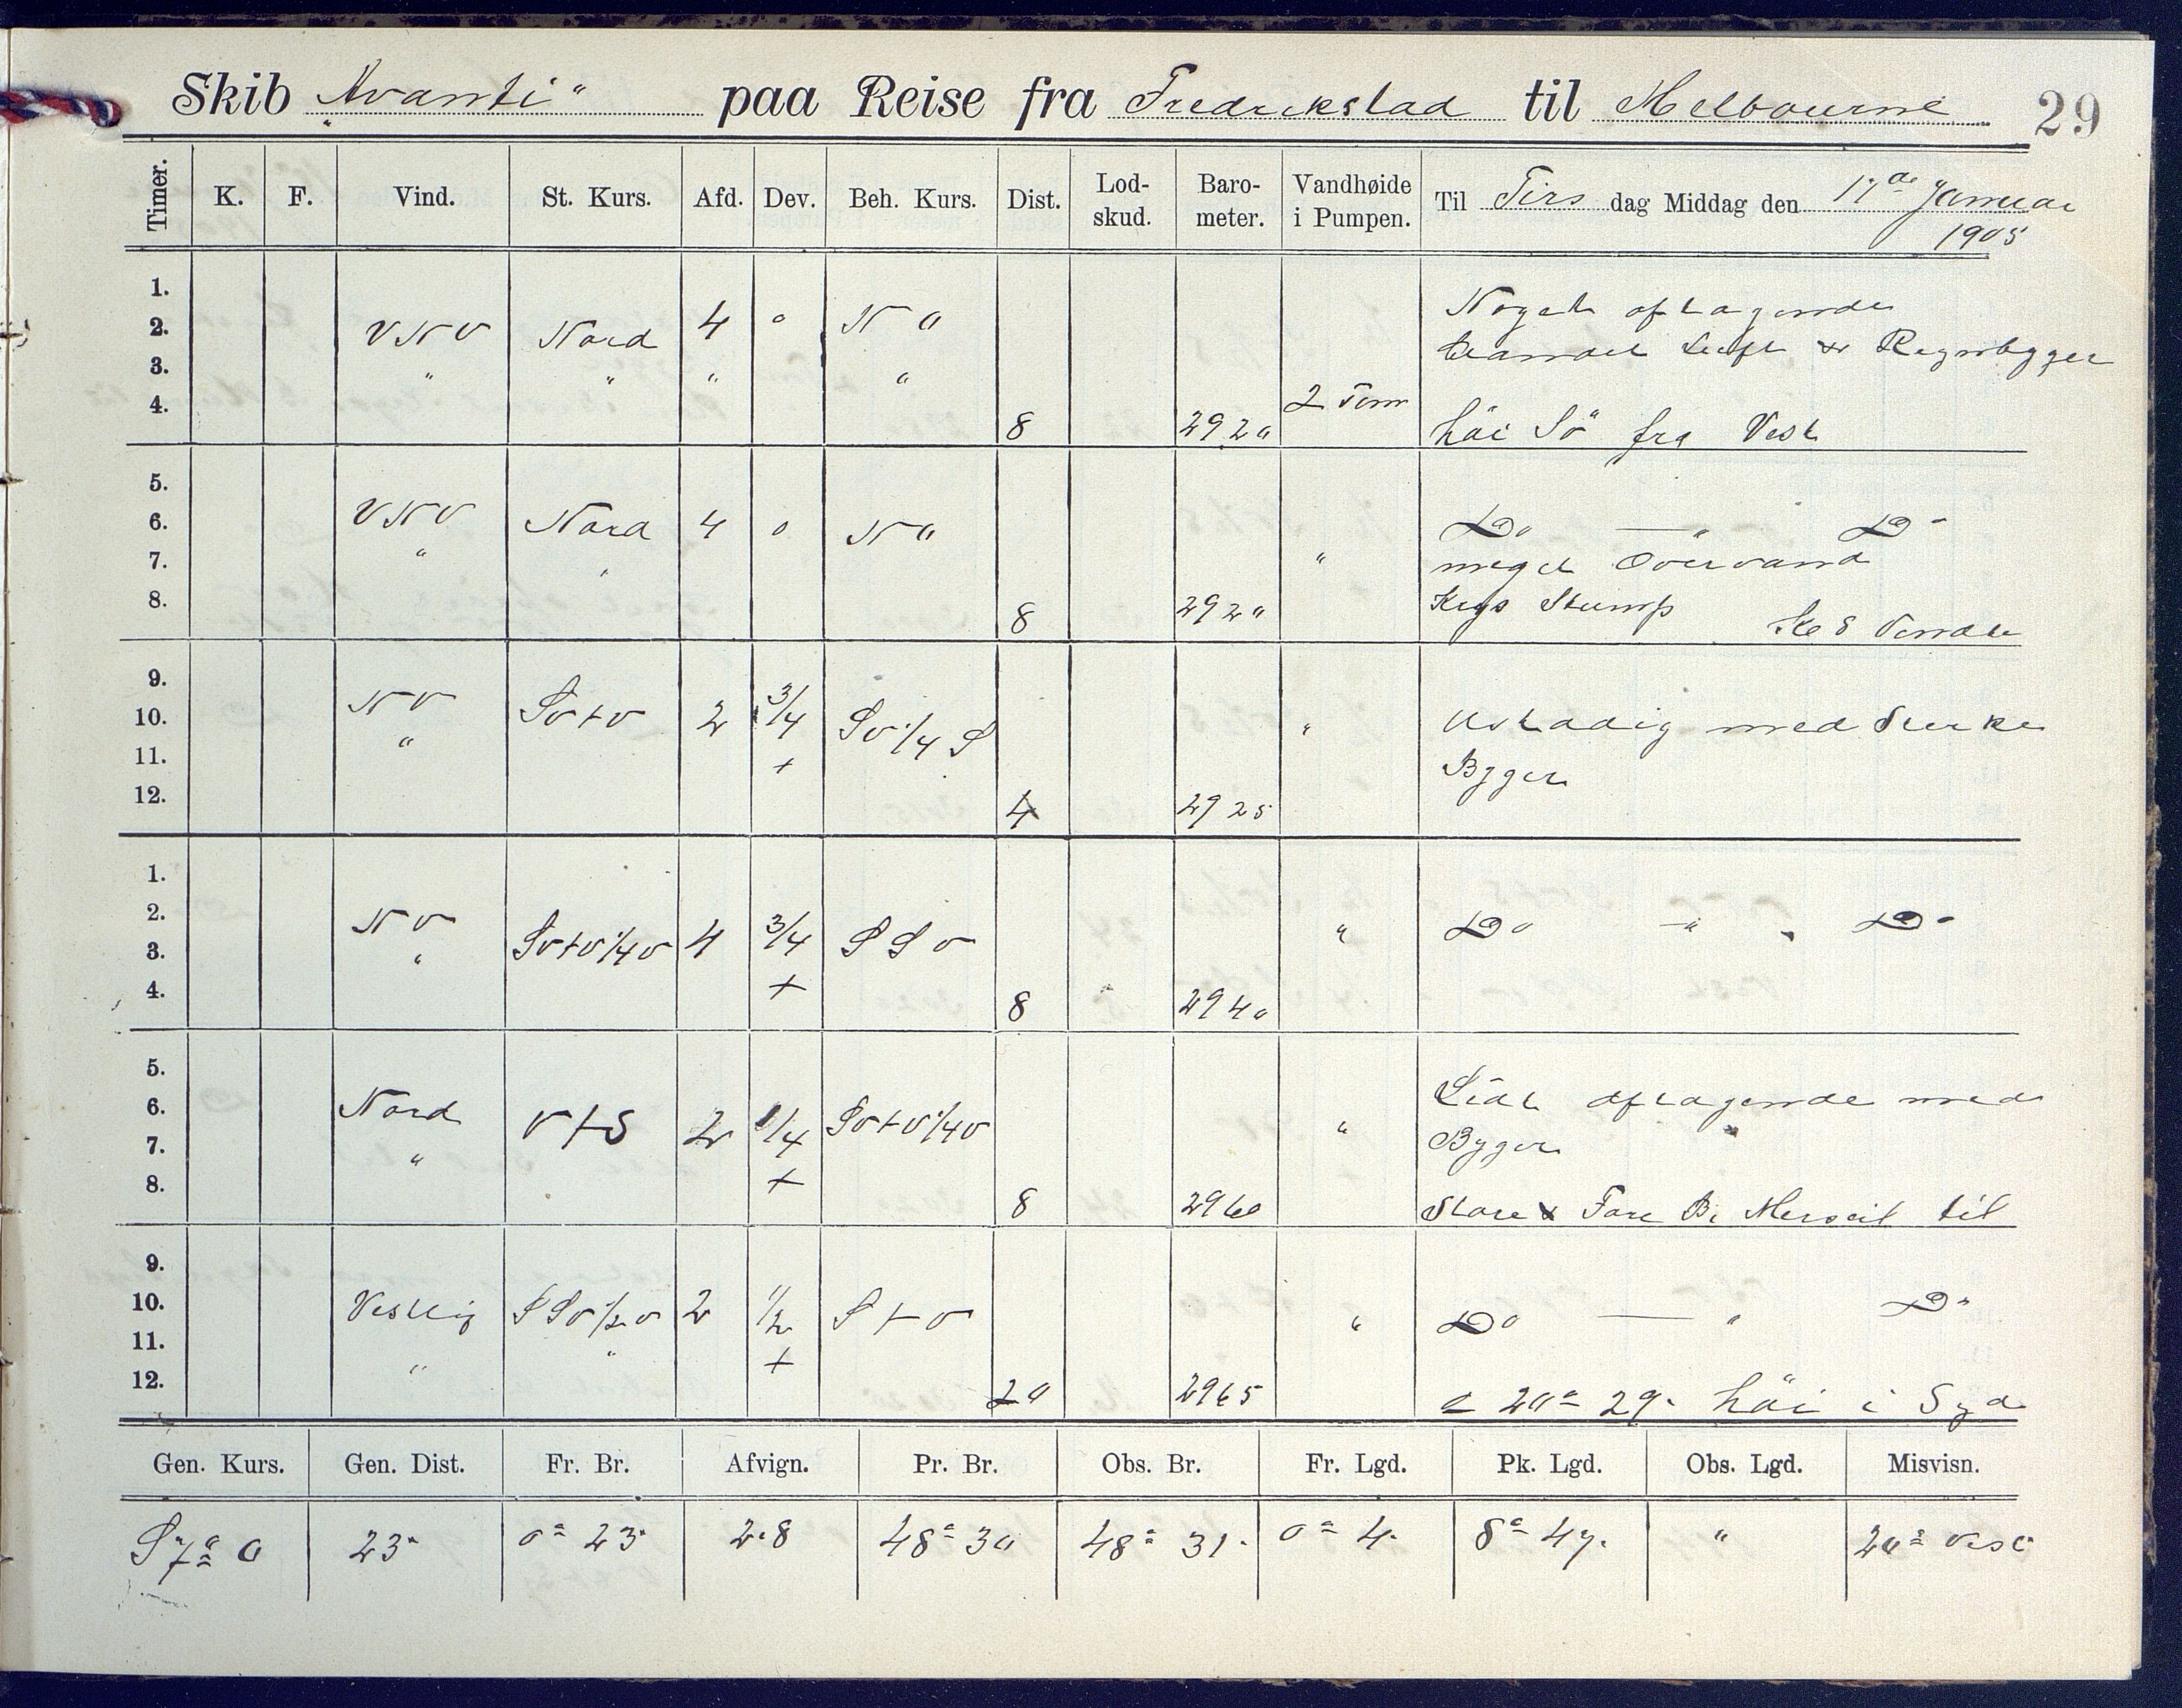 Skib "Avanti" paa Reise fra Fredrekstad til Melbourne 29
Timer. K. F. Vind. St. Kurs. Afd. Dev. Beh. Kurs. Dist. Lod-skud. Baro-meter. Vandhøide i Pumpen. Til Tirs dag Middag den 17de Januar
1905
1.
2. VNV Nord 4 0 N 0 Noget aftagende
3. " " " " Blandet Luft & Regnbyger
4. 8 29 20 2 Tom häi Sö fra Vest
5.
6. VNV Nord 4 0 N 0 Do — " Do
7. " " " meget Overvand
8. 8 29 20 Krys Stump Kl 8 Vendte
9.
10. NV SVtV 2 3/4 SV 1/4 S " Ustadig med Sterke
11. " + Byger
12. 4 29 25
1.
2. NV SVtV 1/4 V 4 3/4 SSV " Do — " Do
3. "
4. + 8 29 40
5.
6. Nord VtS 2 1/4 SVtV 1/4 V " Lidt aftagende med
7. " Byger
8. + 8 29 60 Store & Fore B. Merseil til
9.
10. Vestlig SSV 1/2 V 2 1/2 StV " Do — " Do
11. " +
12. " 20 29 65 20° 29' häi i Syd
Gen. Kurs. Gen. Dist. Fr. Br. Afvign. Pr. Br. Obs. Br. Fr. Lgd. Pk. Lgd. Obs. Lgd. Misvisn.
S 7° O 23' 0° 23' 2.8 48° 30 48° 31' 0° 4' 8° 47' " 20° Vest